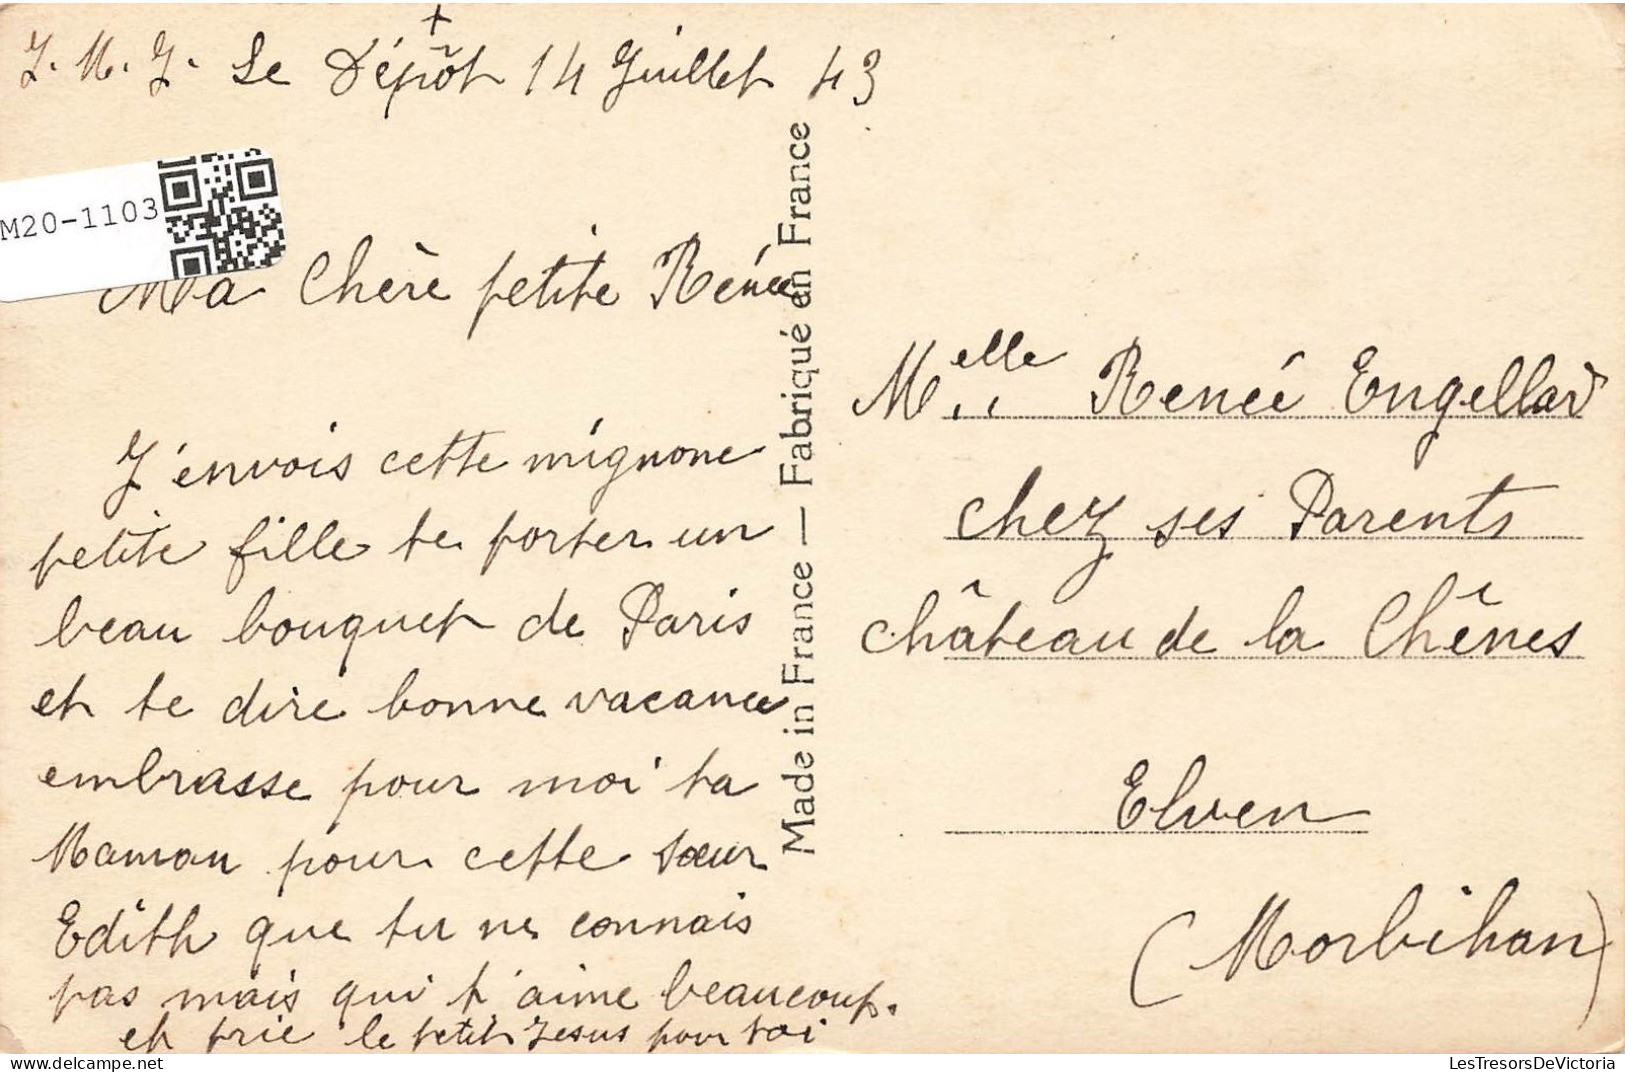 +
J. M. J. Le Dépôt 14 Juillet 43
M20-1103
Ma Chère petite Renée
J'envois cette mignone
petite fille te porter un
beau bouquet de Paris
et te dire bonne vacance
embrasse pour moi ta
Maman pour cette sœur
Edith que tu ne connais
pas mais qui t'aime beaucoup.
et prie le petit Jesus pour toi
Made in France — Fabriqué en France
Melle Renée Engellard
chez ses Parents
château de la Chênes
Elven
(Morbihan)
LesTresorsDeVictoria